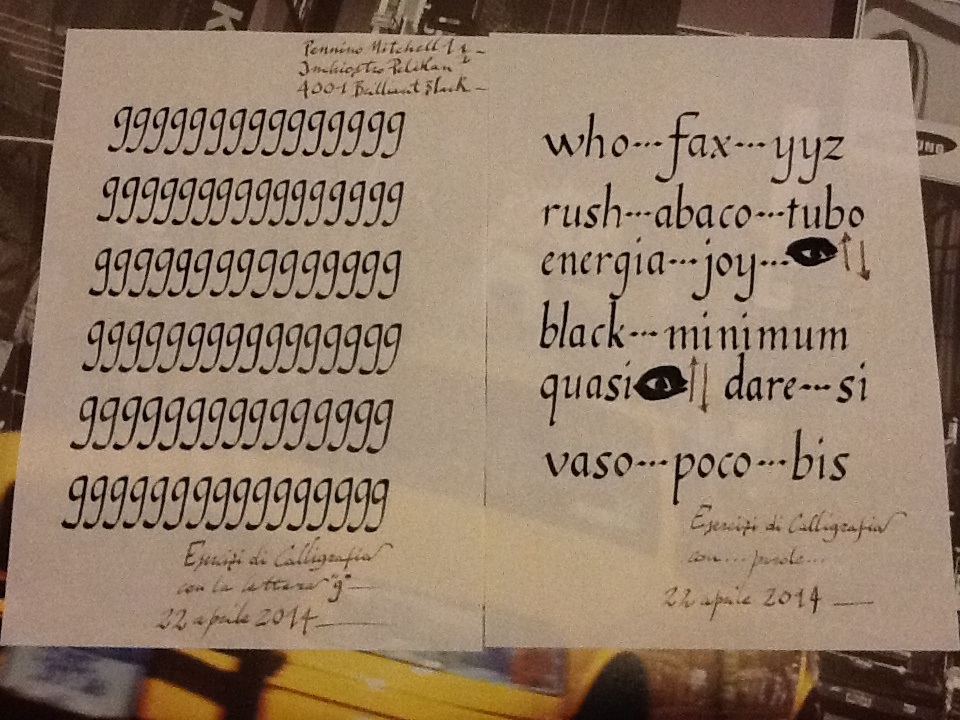 Pennino Mitchell 1 ½ –
Inchiostro Pelikan
4001 Brilliant Black –
ggggggggggggggg
ggggggggggggggg
ggggggggggggggg
ggggggggggggggg
ggggggggggggggg
gggggggggggggggg
Esercizi di Calligrafia
con la lettera "g" —
22 aprile 2014 —
who···fax···yyz
rush···abaco···tubo
energia···joy···
black···minimum
quasi dare···si
vaso···poco···bis
Esercizi di Calligrafia
con...parole...
22 aprile 2014 —